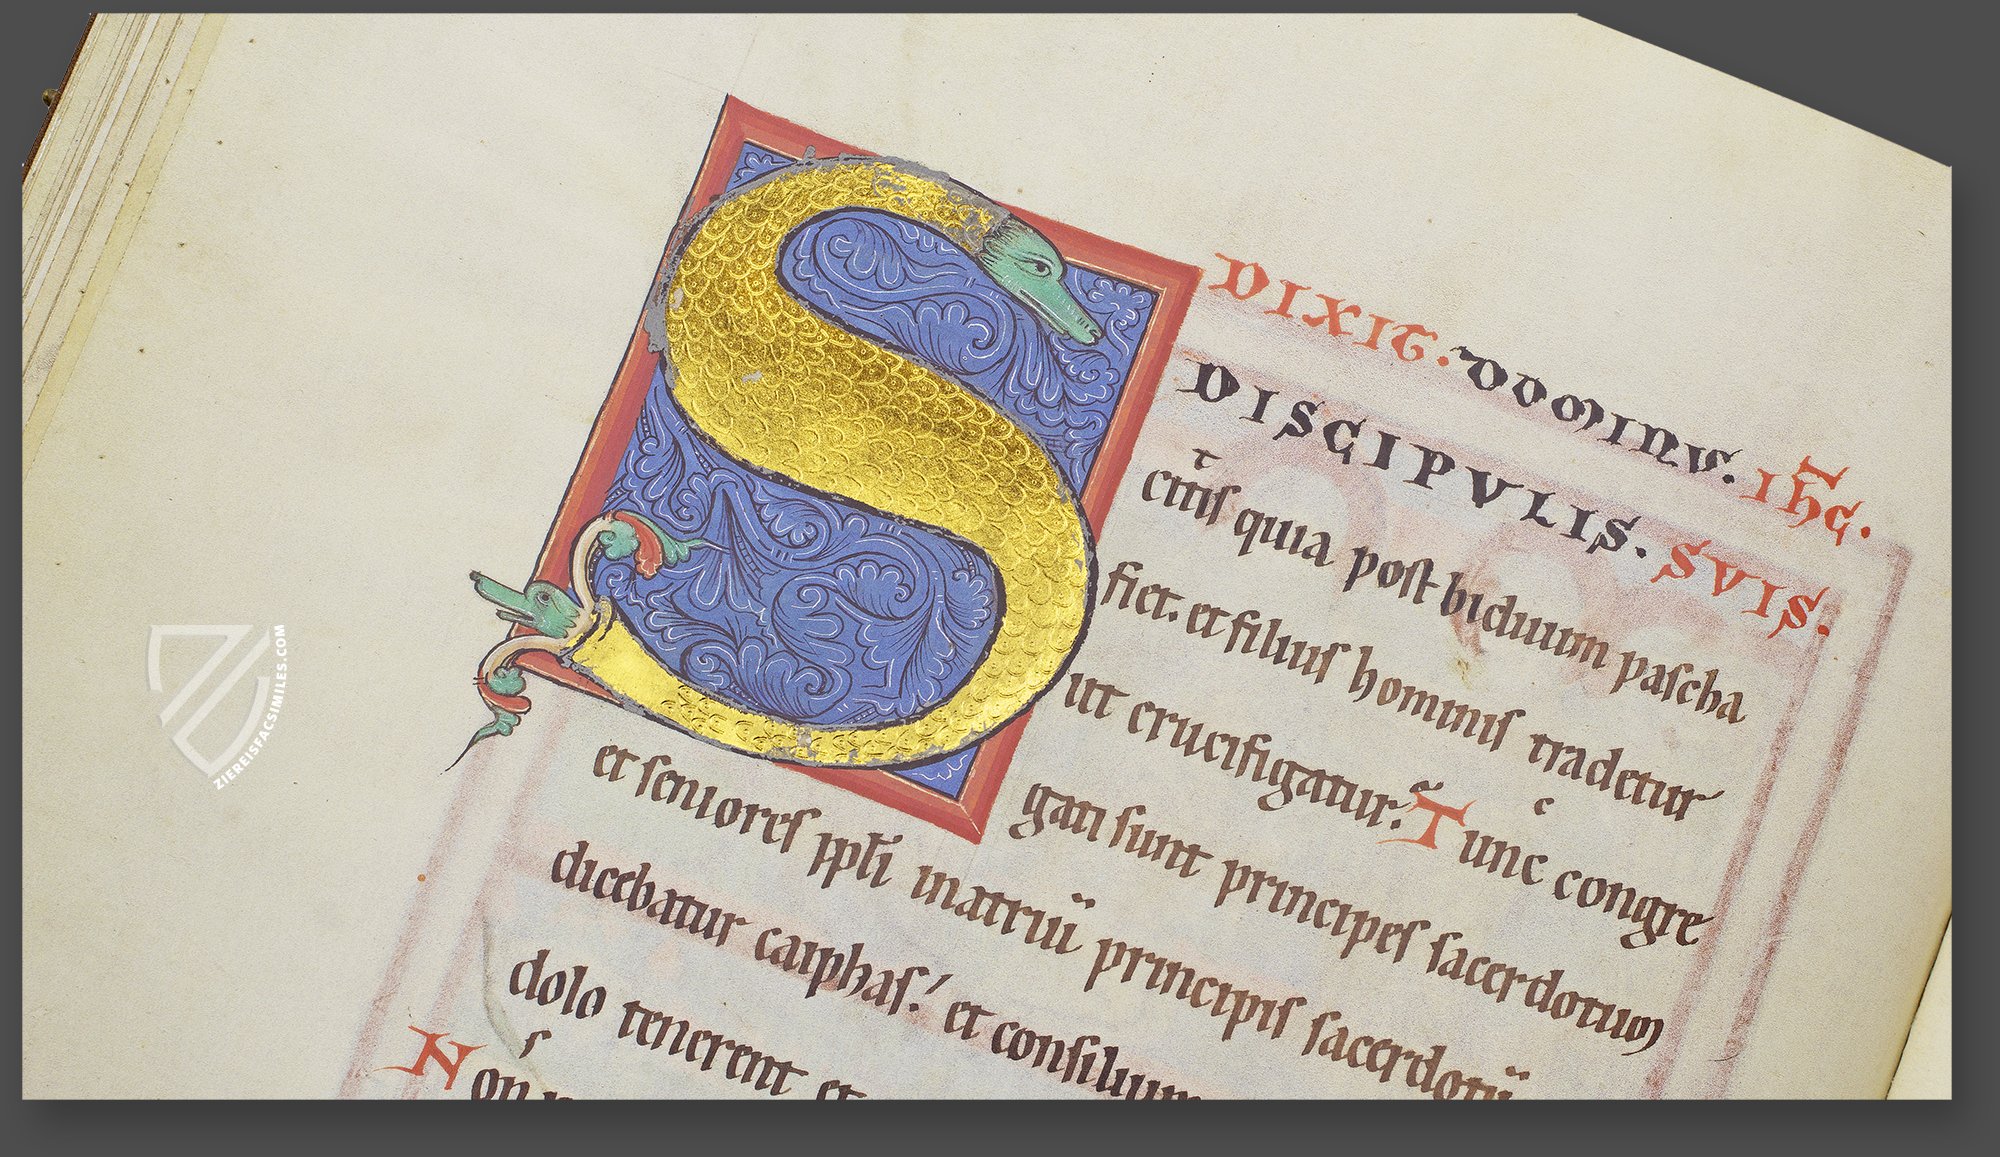 DIXIT. DOMINUS. IHC.
S DISCIPVLIS. SVIS.
citis quia post biduum pascha
fiet. et filius hominis tradetur
ut crucifigatur. Tunc congre
gati sunt principes sacerdotum
et seniores ppli inatriu principis sacerdotu
dicebatur caiphas. et consilium
dolo tenerent et
Non
ZIEREISFACSIMILES.COM